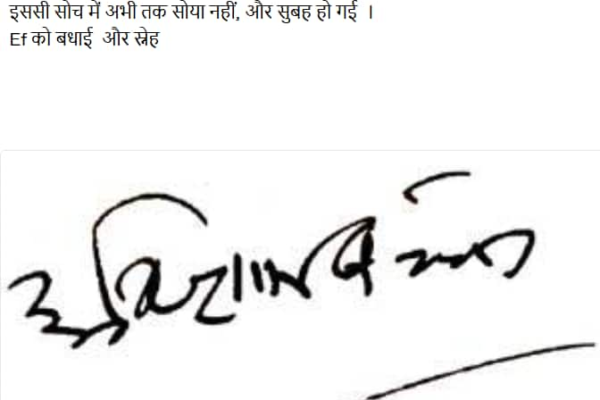 इससी सोच में अभी तक सोया नहीं, और सुबह हो गई ।
Ef को बधाई और स्नेह